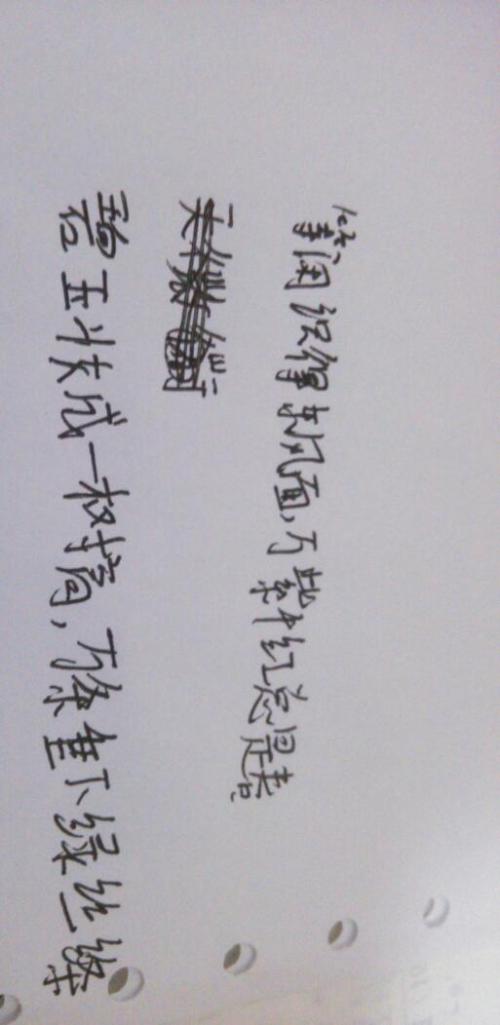 等闲识得东风面,万紫千红总是春。
碧玉妆成一树高,万条垂下绿丝绦